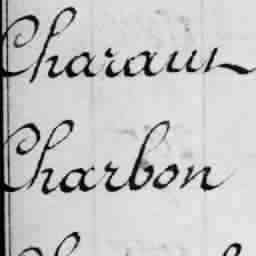 Charaux
Charbon